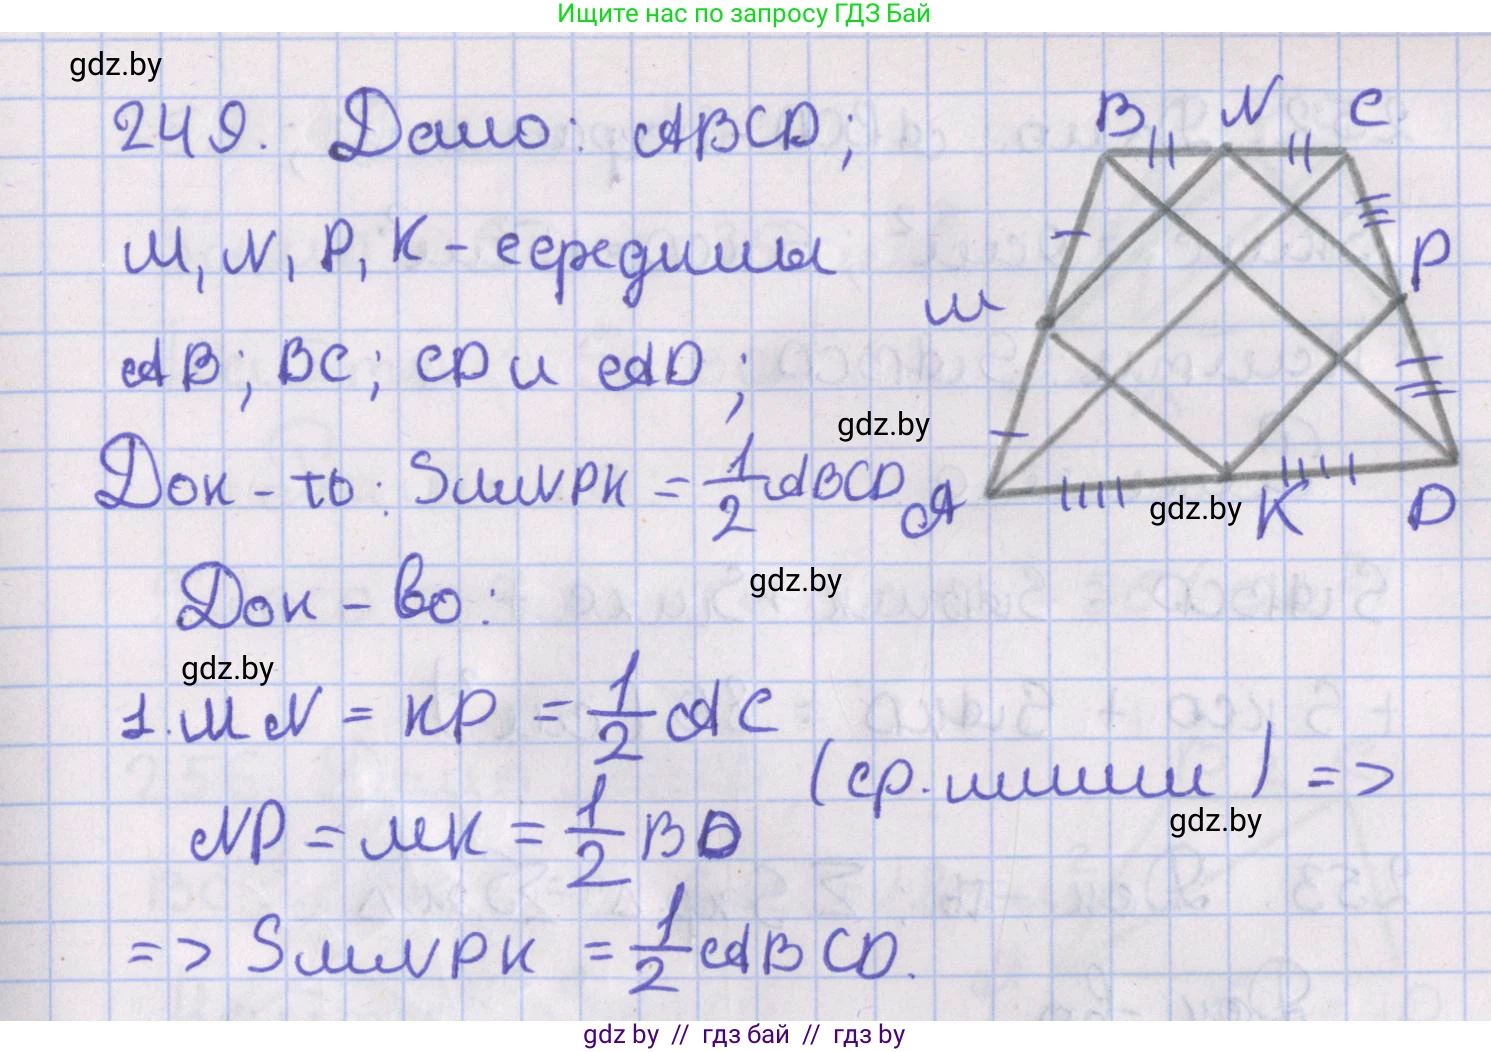 Ищите нас по запросу ГДЗ Бай
gdz.by
249. Дано: ABCD;
M, N, P, K - середины
AB; BC; CD и AD;
gdz.by
Док-ть: SMNPK = 1/2 ABCD
Док-во:
gdz.by
gdz.by
1. MN = KP = 1/2 AC
(ср. линии) =>
NP = MK = 1/2 BD
gdz.by
=> SMNPK = 1/2 ABCD.
B N C
P
M
A K D
gdz.by
gdz by // гдз бай // гдз by